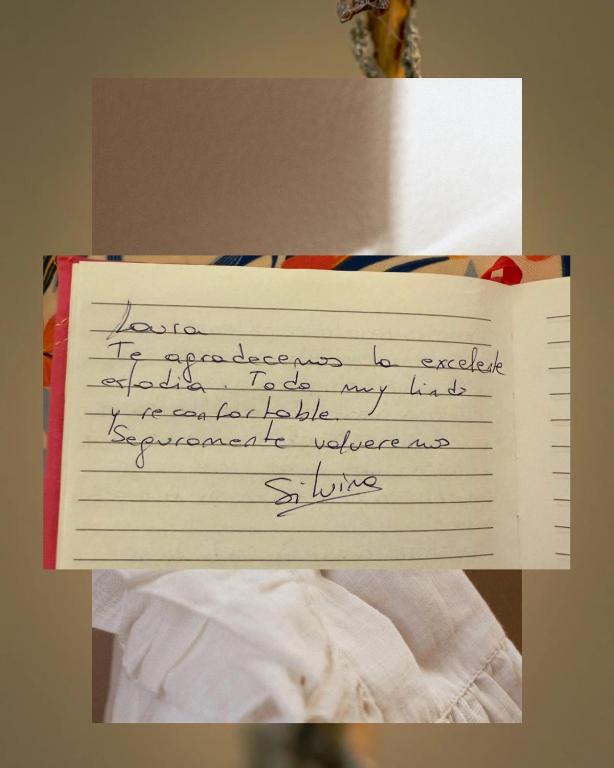 Laura
Te agradecemos la excelente
estadia. Todo muy lindo
y reconfortable.
Seguramente volveremos
Silvina